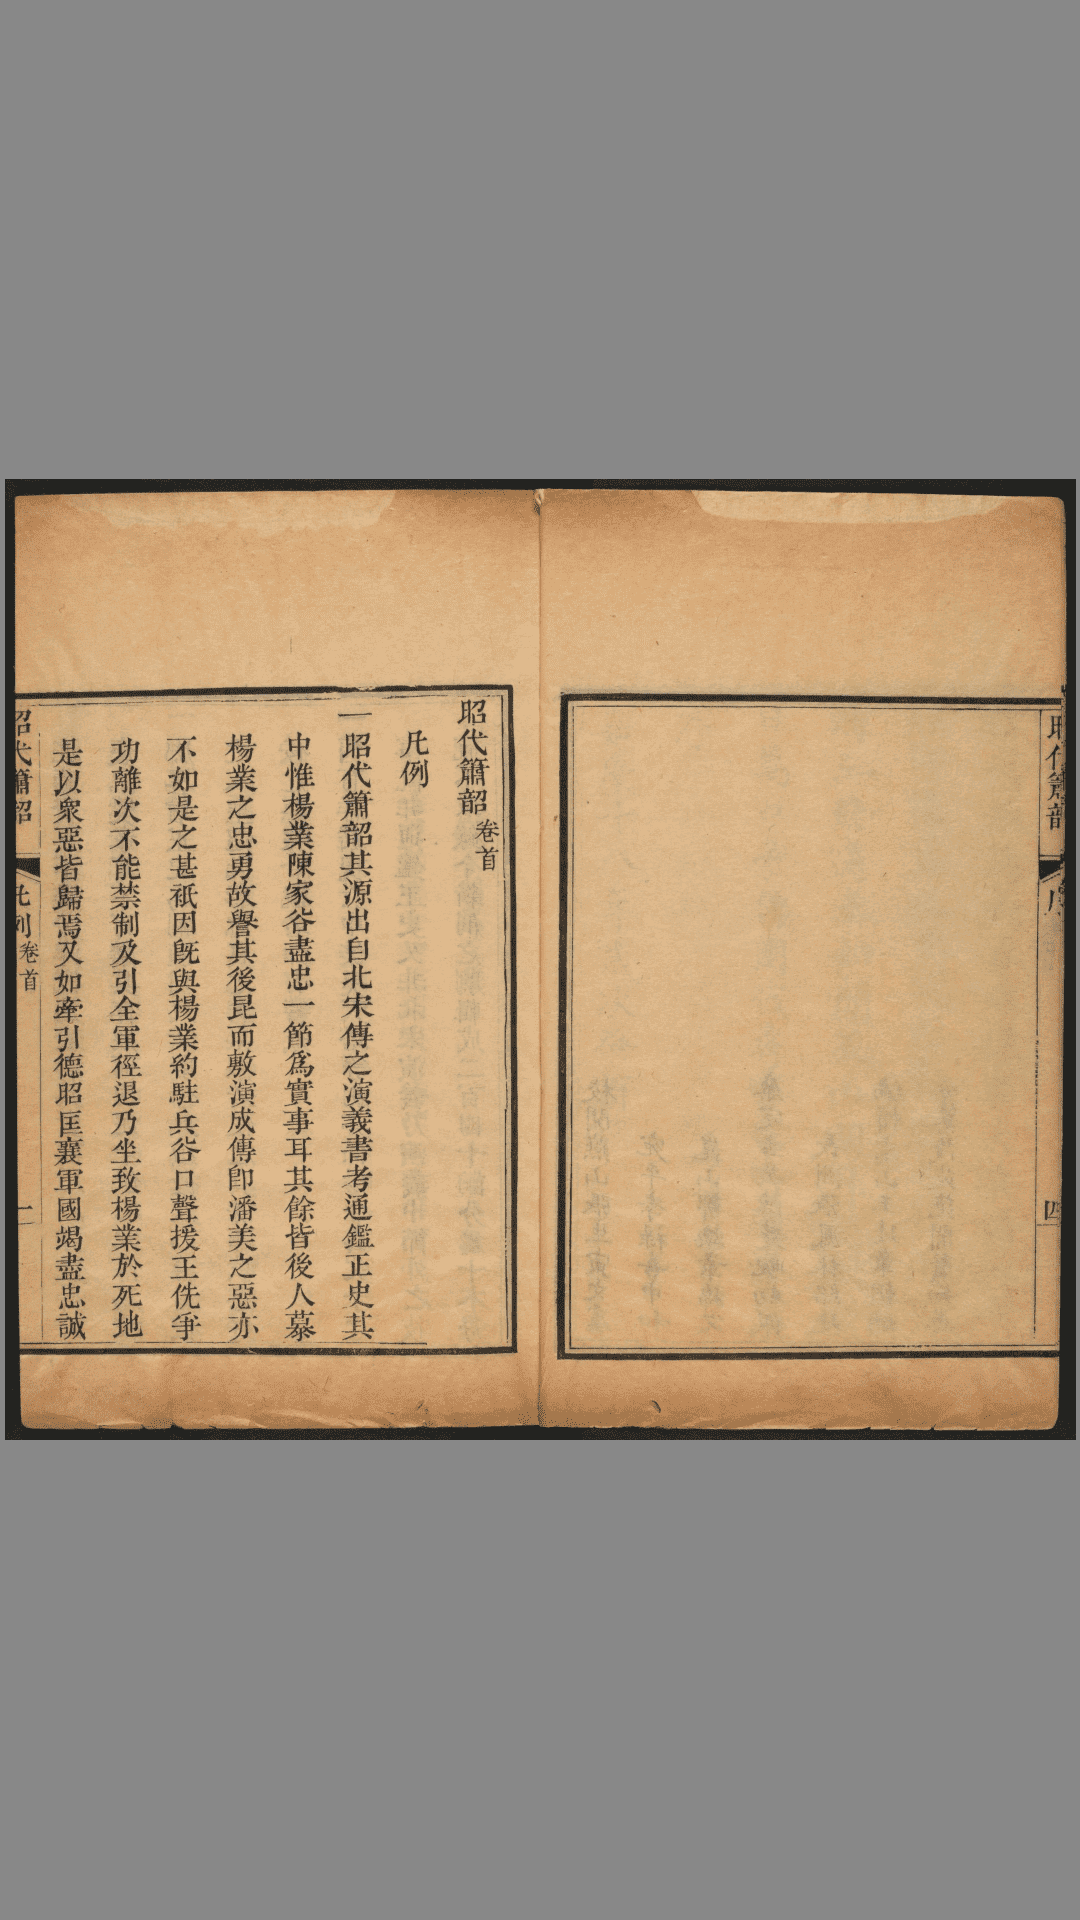 昭代簫韶
序
四
昭代簫韶卷首
凡例
一昭代簫韶其源出自北宋傳之演義書考通鑑正史其
中惟楊業陳家谷盡忠一節爲實事耳其餘皆後人慕
楊業之忠勇故譽其後昆而敷演成傳卽潘美之惡亦
不如是之甚祇因旣與楊業約駐兵谷口聲援王侁爭
功離次不能禁制及引全軍徑退乃坐致楊業於死地
是以衆惡皆歸焉又如牽引德昭匡襄軍國竭盡忠誠
昭代簫韶
凡例卷首
一